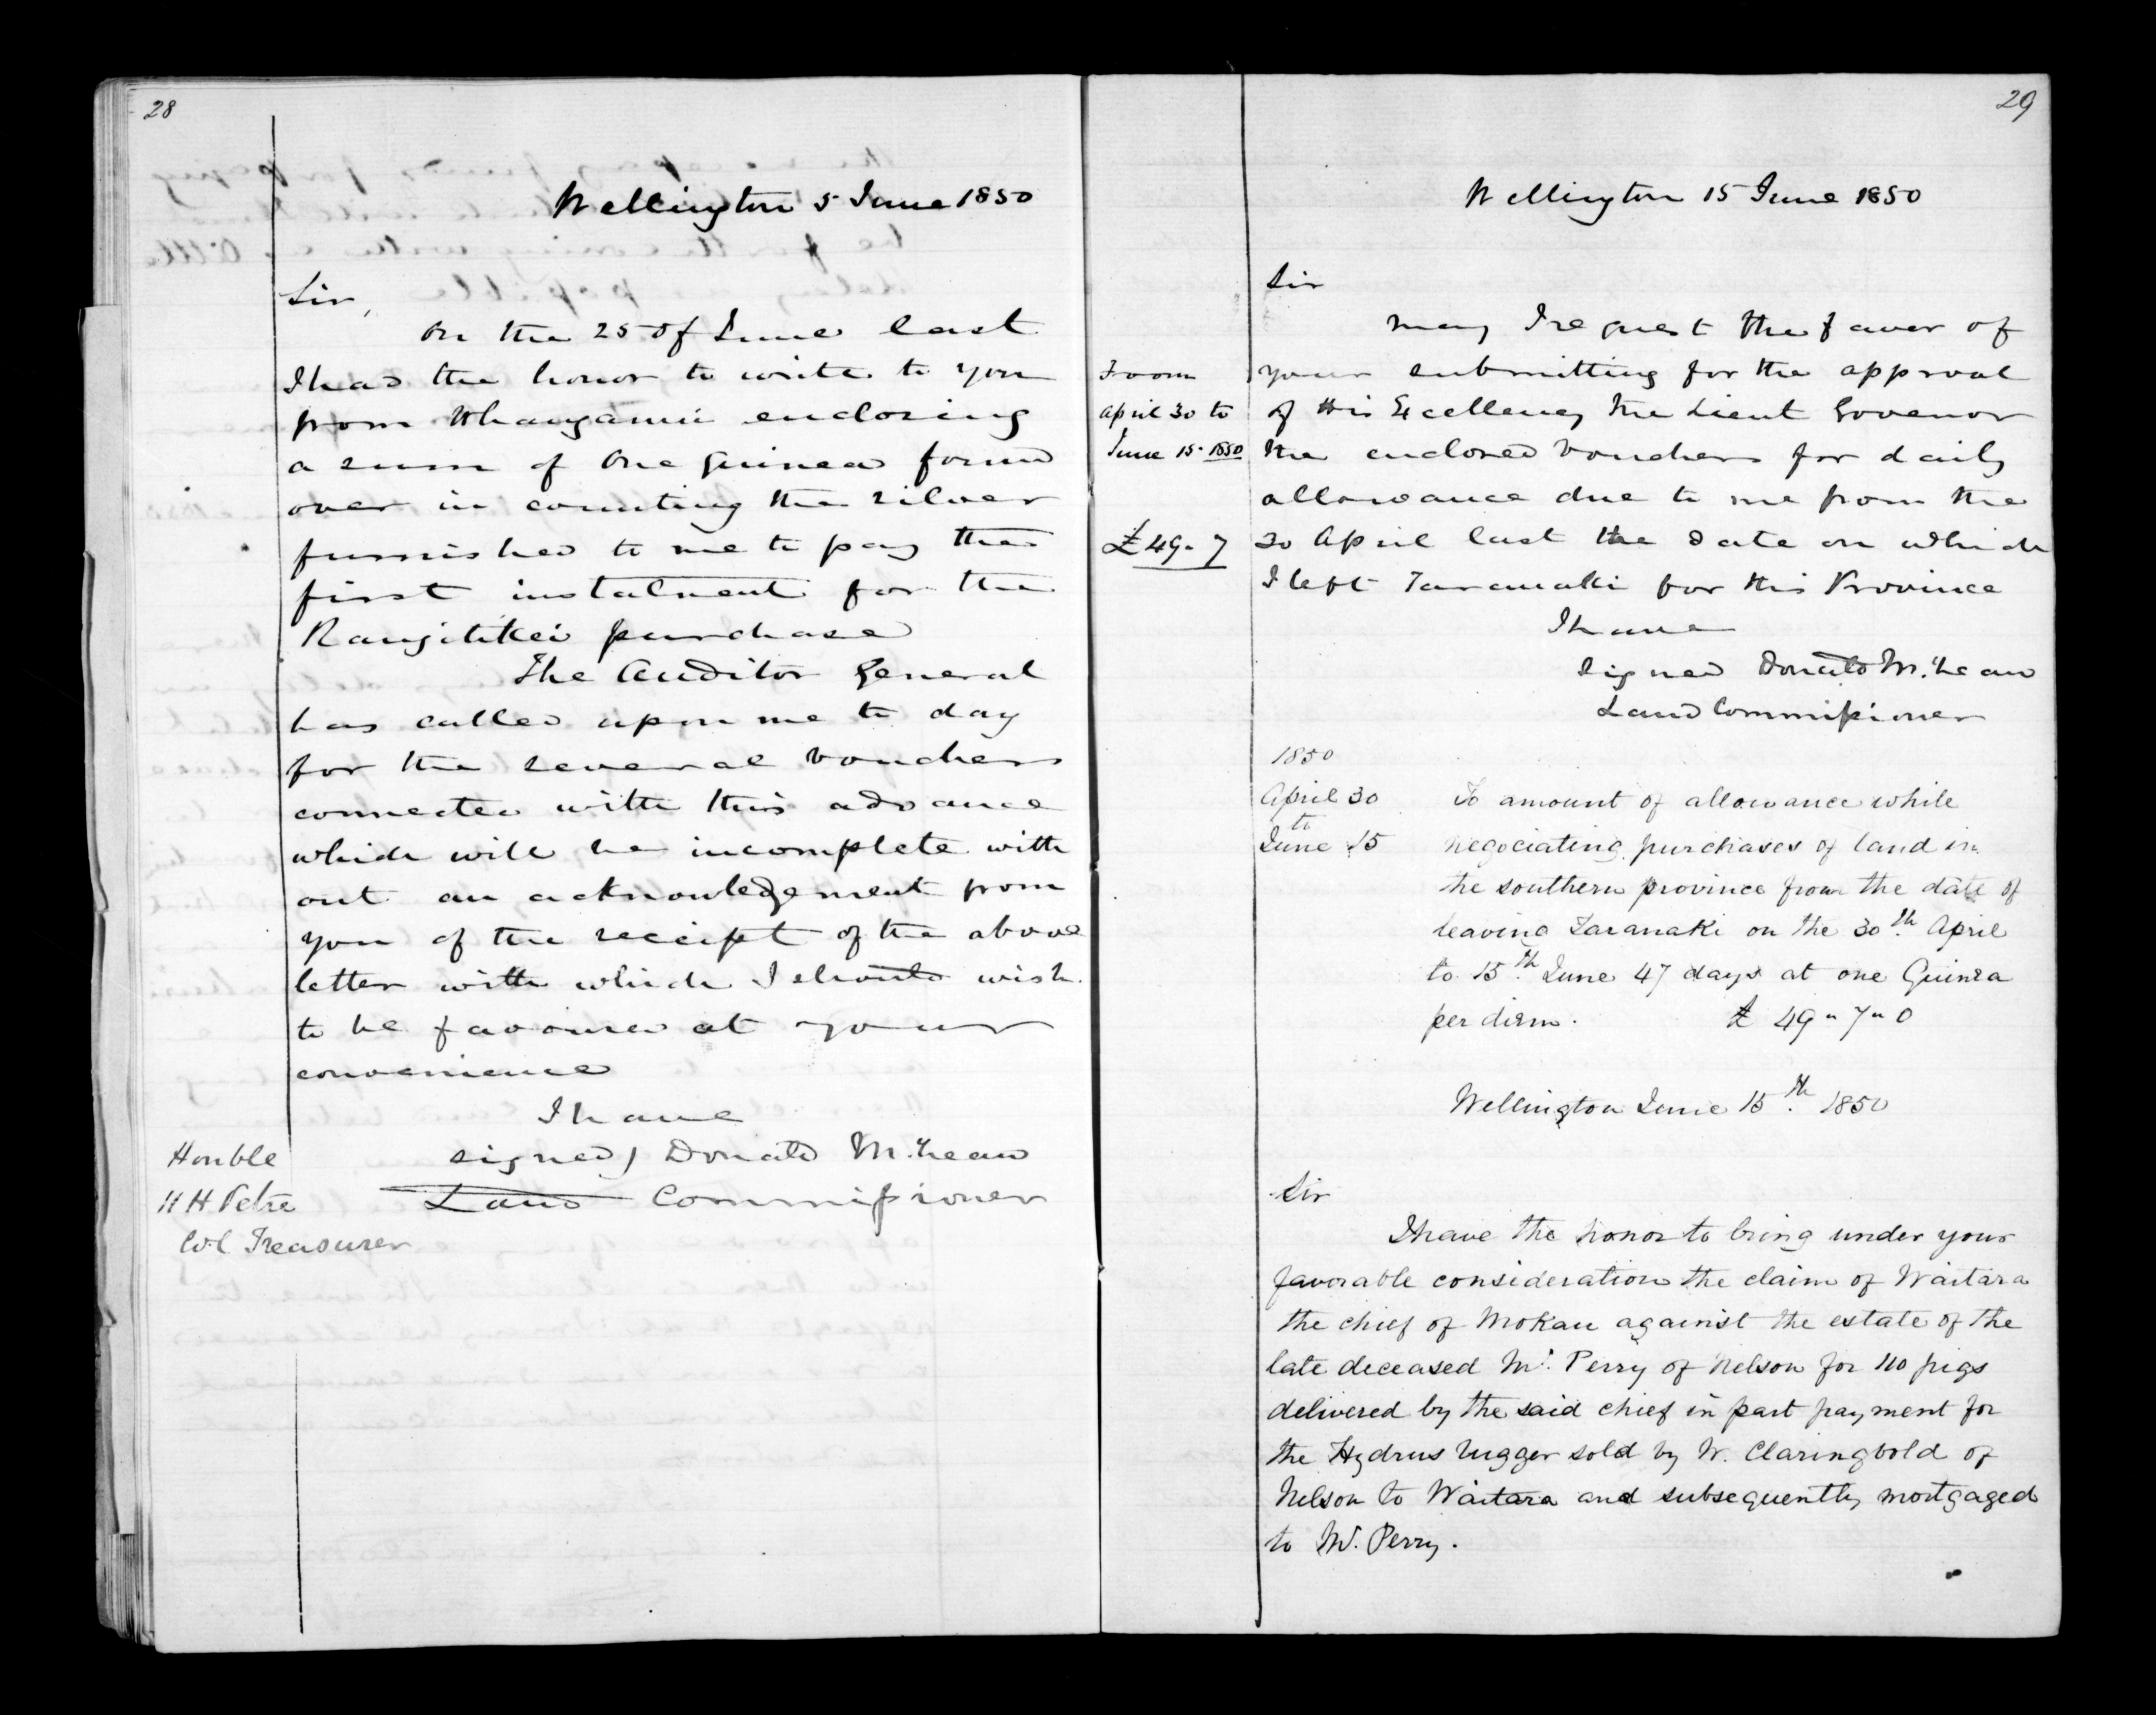 28
Wellington 5 June 1850
Sir,
On the 25 of June last
I had the honor to write to you
from Whanganui enclosing
a sum of One Guinea found
over in counting the silver
furnished to me to pay the
first instalment for the
Rangitikei purchase
The Auditor General
has called upon me to day
for the several vouchers
connected with this advance
which will be incomplete with
out an acknowledgement from
you of the receipt of the above
letter with which I should wish
to be favoured at your
convenience
I have
signed) Donald McLean
Land Commissioner
Honble
H H Petre
Col Treasurer
29
Wellington 15 June 1850
Sir
May I request the favor of
your submitting for the approval
of His Excellency the Lieut Govenor
the enclosed vouchers for daily
allowance due to me from the
30 April last the date on which
I left Taranaki for this Province
I have
signed Donald McLean
Land Commissioner
From
April 30 to
June 15. 1850
£49. 7
1850
April 30
to
June 15
To amount of allowance while
negociating purchases of land in
the southern province from the date of
leaving Taranaki on the 30th April
to 15th June 47 days at one Guinea
per diem. £ 49 " 7 " 0
Wellington June 15th 1850
Sir
I have the honor to bring under your
favorable consideration the claim of Waitara
the chief of Mokau against the estate of the
late deceased Mr. Perry of Nelson for 110 pigs
delivered by the said chief in part payment for
the Hydrus lugger sold by W. Claringbold of
Nelson to Waitara and subsequently mortgaged
to Mr. Perry.